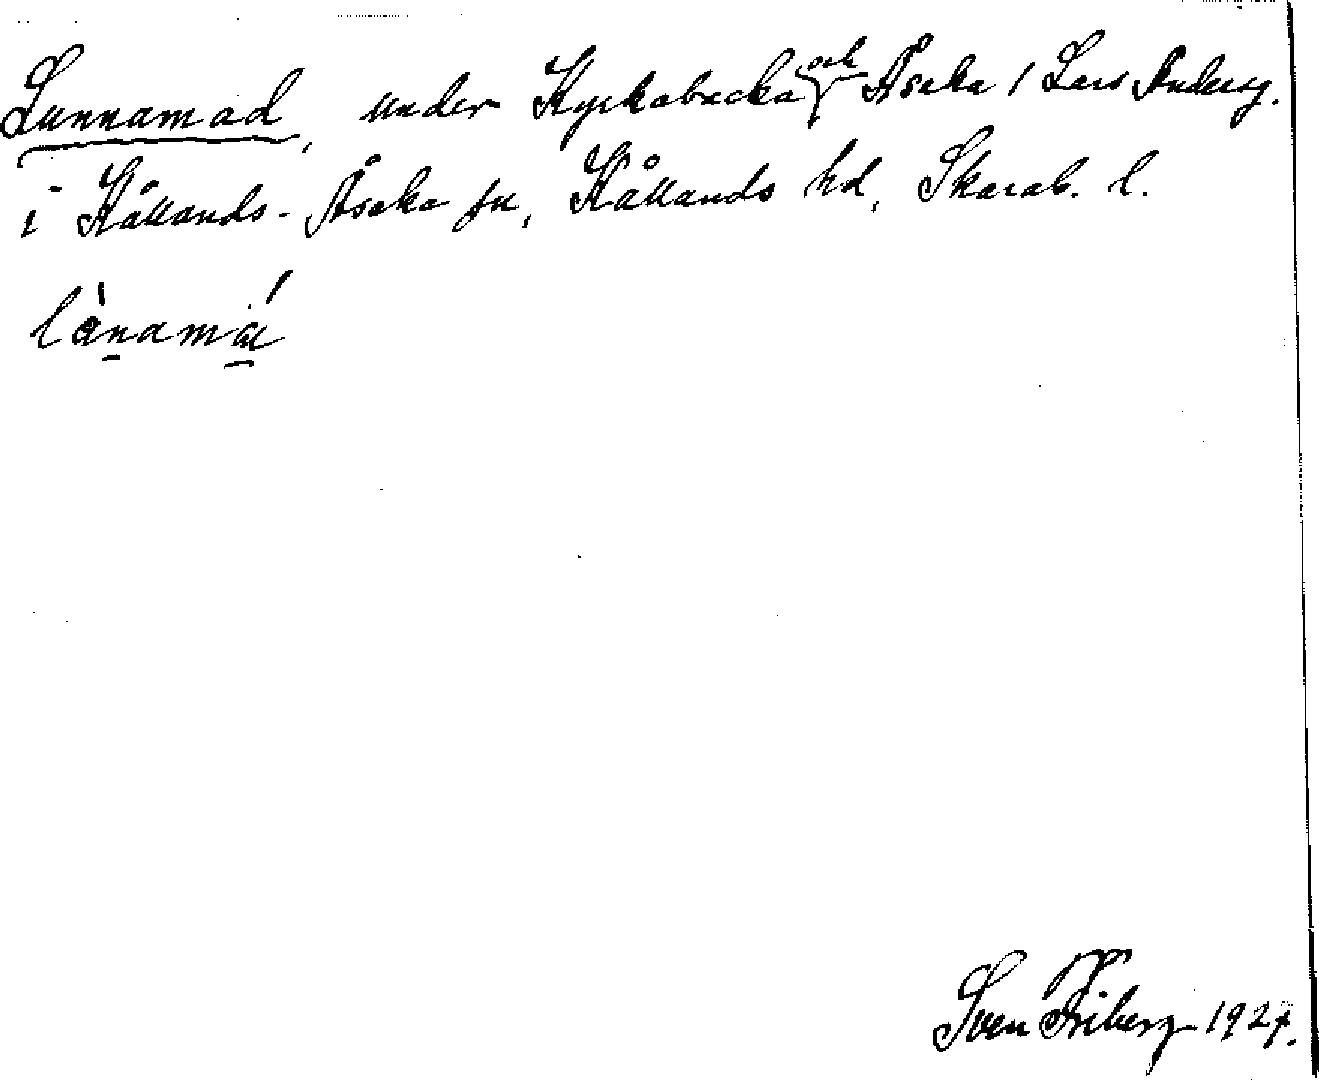 Lunnamad, under Kyrkobacka och Åseka / Lars Anders g.
i Kållands-Åseka sn, Kållands hd, Skarab. l.
Sven Friberg 1927.